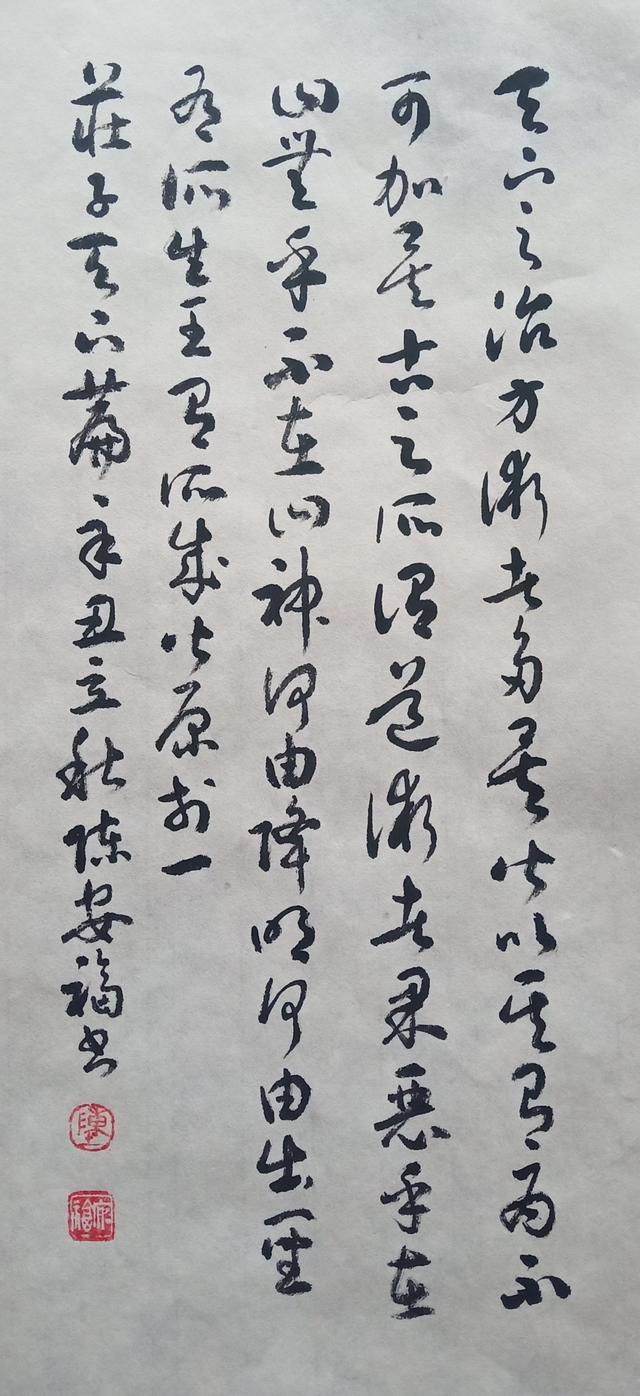 天下之治方術者多矣皆以其有為不
可加矣古之所謂道術者果惡乎在
曰無乎不在曰神何由降明何由出聖
有所生王有所成皆原於一
莊子天下篇辛丑立秋陳安福書
陳
安福